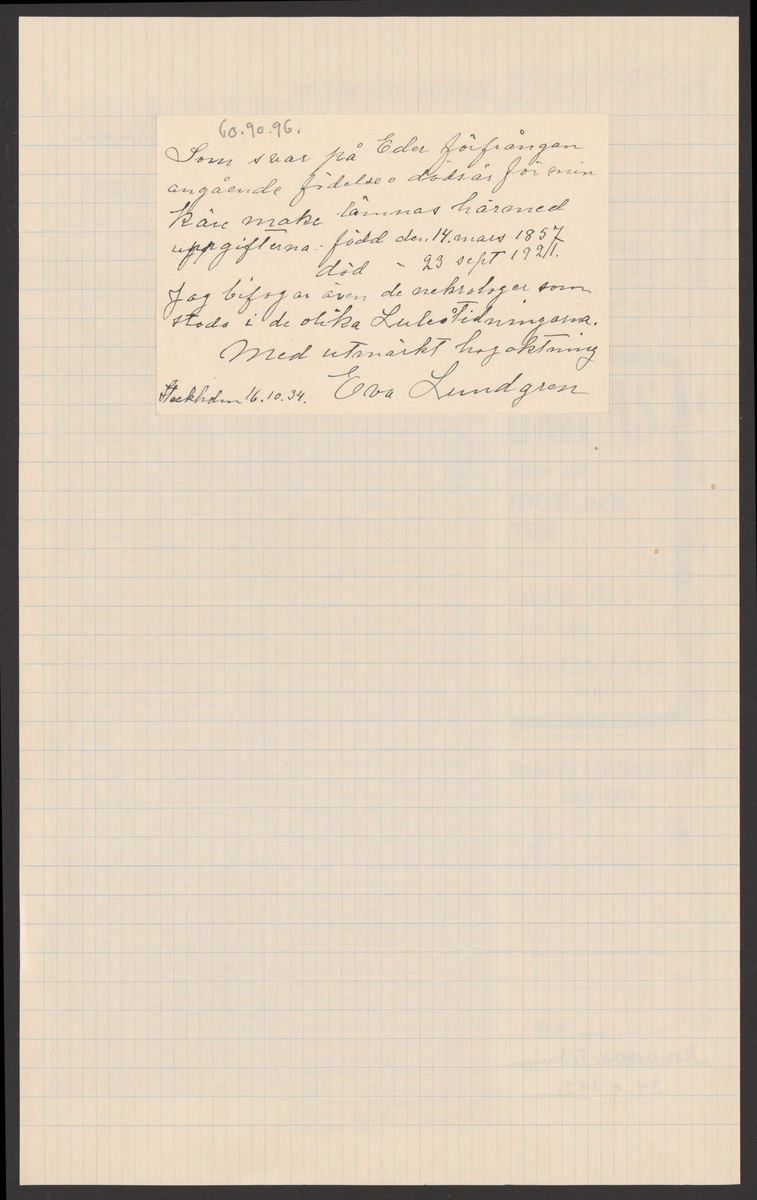 60.90.96.
Som svar på Eder förfrågan
angående födelse o dödsår för min
käre make lämnas härmed
uppgifterna: född den 14. mars 1857
död " 23 sept 1921.
Jag bifogar även de nekrologer som
stodo i de olika Luleå Tidningarna.
Med utmärkt högaktning
Stockholm 16.10.34. Eva Lundgren